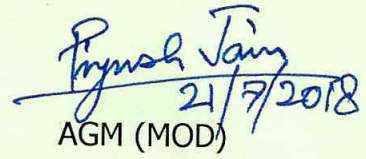 Piyush Jain
21/7/2018
AGM (MOD)